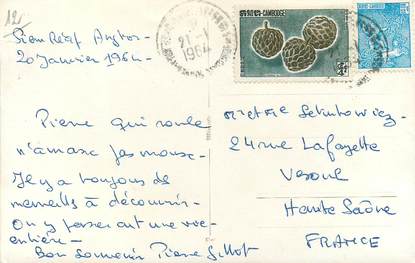 Siem Réap Angkor -
20 Janvier 1964 -
21-1
1964
CAMBODGE
Pierre qui roule
n'amasse pas mousse -
Il y a toujours des
merveilles à découvrir -
On y passerait une vie
entière -
Bon souvenir Pierre Gillot
24 rue Lafayette
Vesoul
Haute Saône
FRANCE